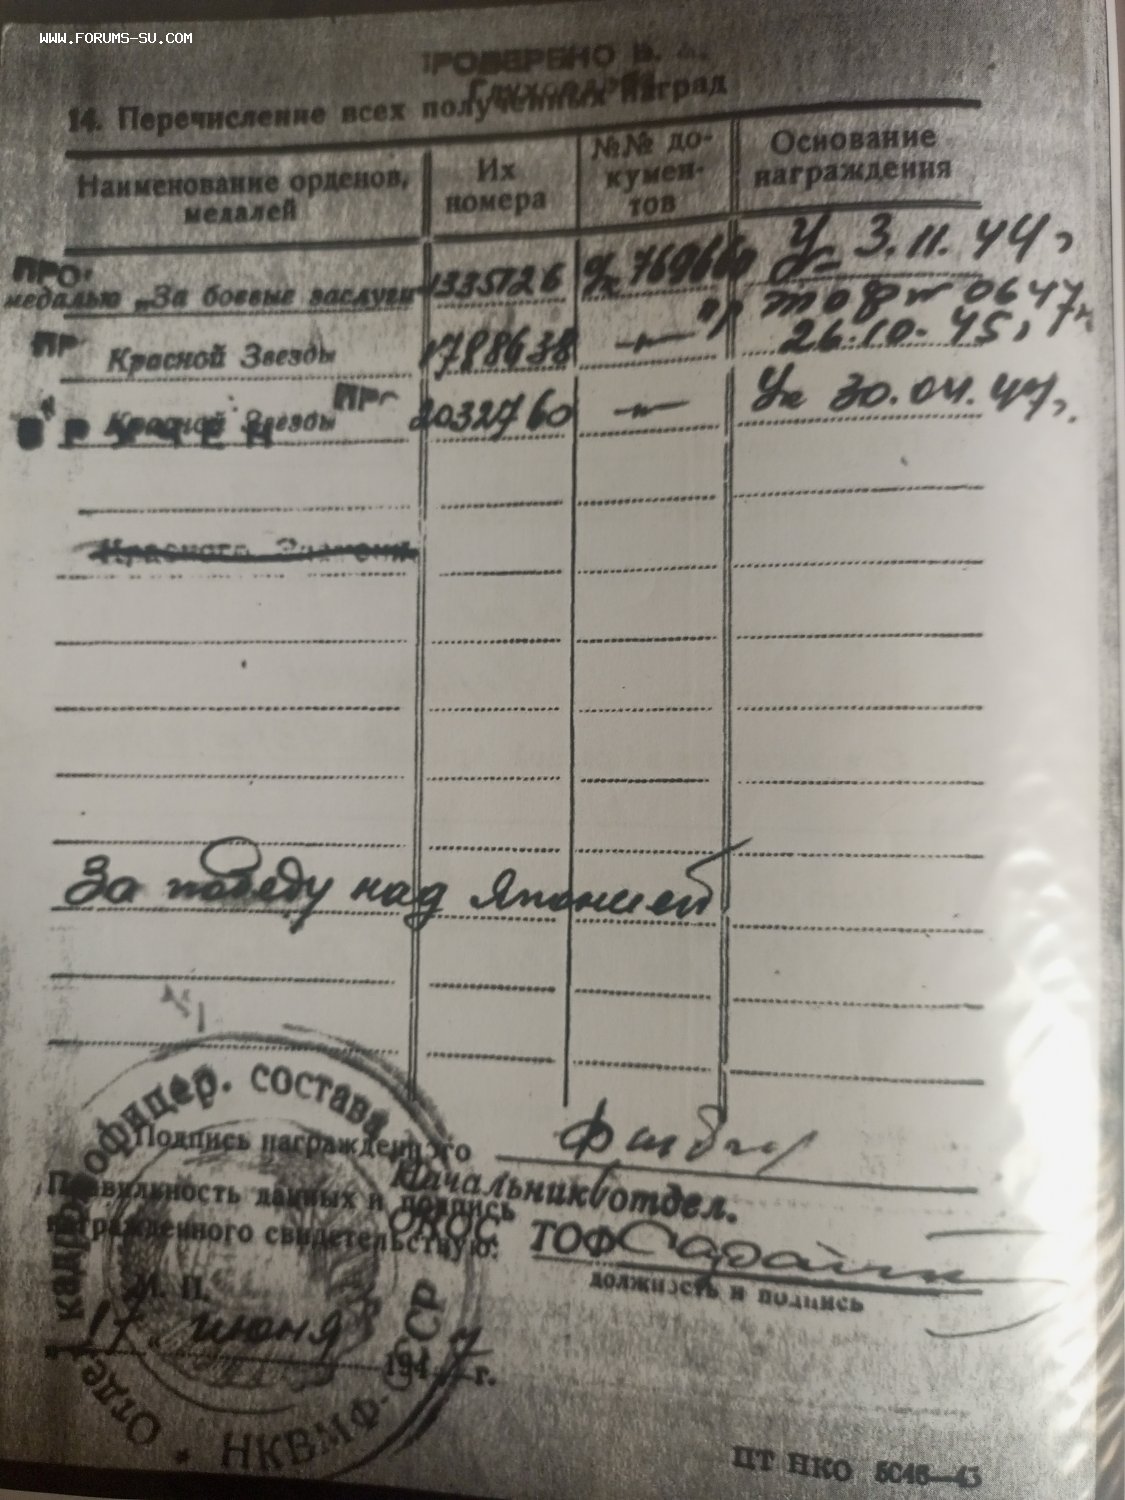 WWW.FORUMS-SU.COM
ПРОВЕРЕНО В.
14. Перечисление всех полученных наград
Наименование орденов, медалей
Их номера
№№ до-кумен-тов
Основание награждения
медалью „За боевые заслуги" 1335126 Ук 769660 Ук 3.11.44г
Красной Звезды 1788638 —〃— пр ТОФ № 0647
26.10.45г
Красной Звезды 2032760 —〃— Ук 30.04.47г.
ВРУЧЕН
Красного Знамени
За победу над Японией
Подпись награжденного
Правильность данных и подпись
награжденного свидетельствую:
Начальник отдел.
ОКОС ТОФ
должность и подпись
М. П.
17 июня 1947 г.
Отдел кадров офицер. состава
НКВМФ СССР
ПТ НКО 5045—43